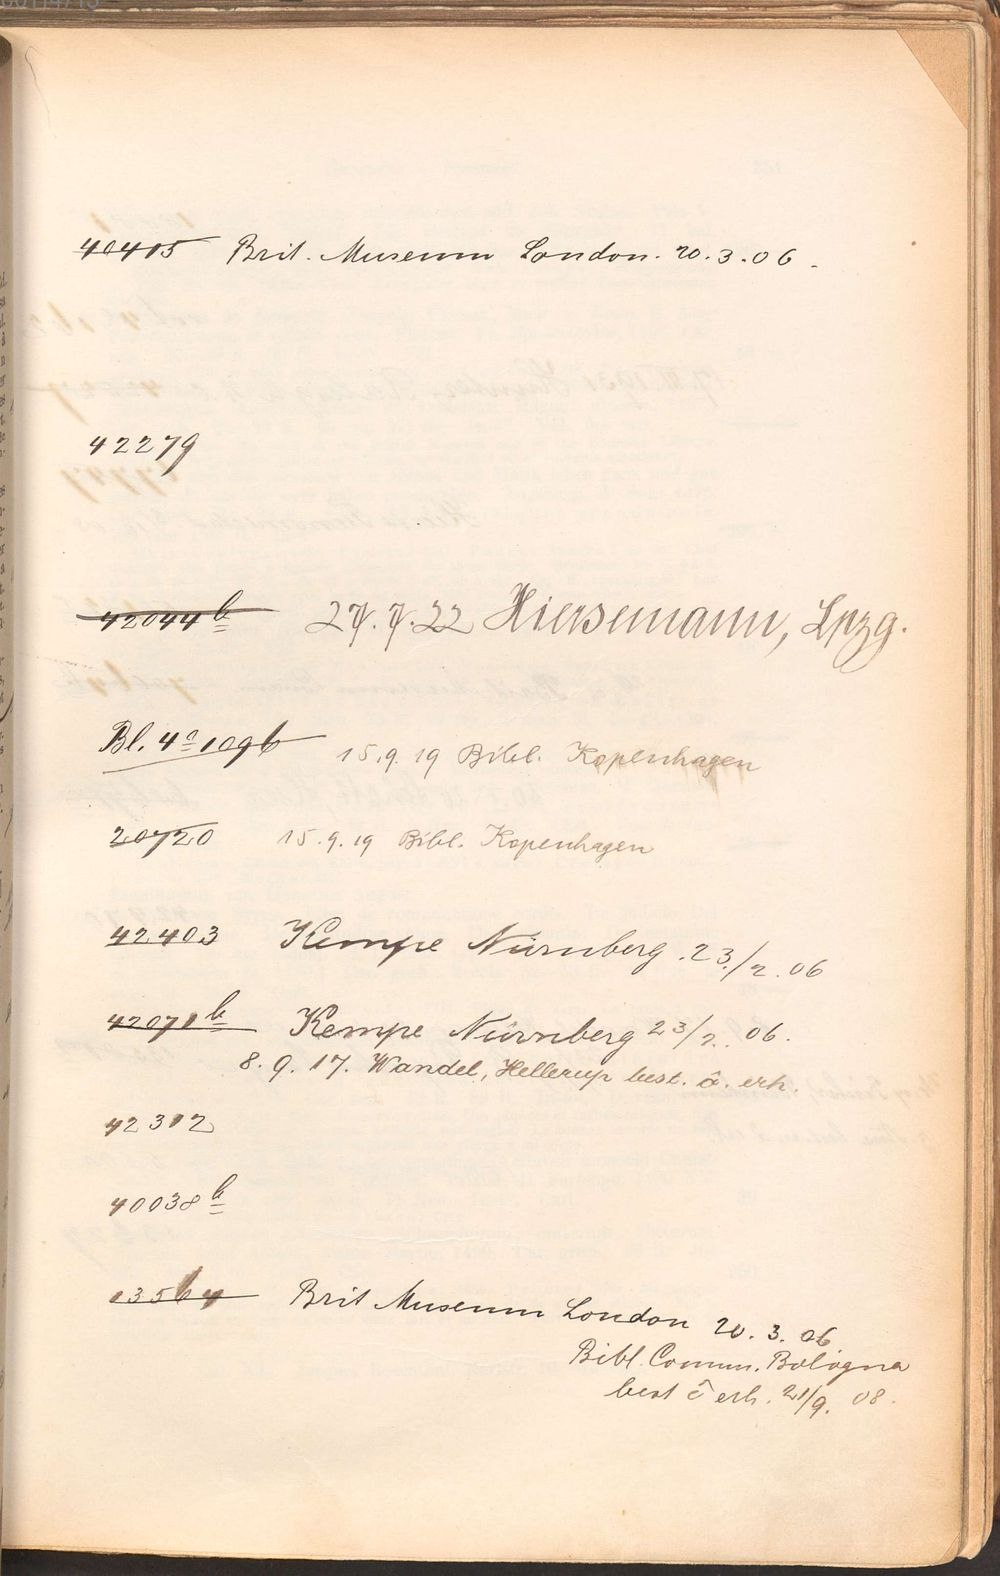 40415 Brit. Museum London. 20.3.06.
42279
42044 b 27.7.22 Hiersemann, Lpzg.
Bl. 4º 109b 15.9.19 Bibl. Kopenhagen
20720 15.9.19 Bibl. Kopenhagen
42403 Kempe Nürnberg. 23./2. 06
42071 b Kempe Nürnberg 23/2. 06.
8. 9. 17. Wandel, Hellerup best. â. erh.
42312
40038 b
13564 Brit Museum London 20. 3. 06
Bibl. Comun. Bologna
best â erh. 21/9. 08.